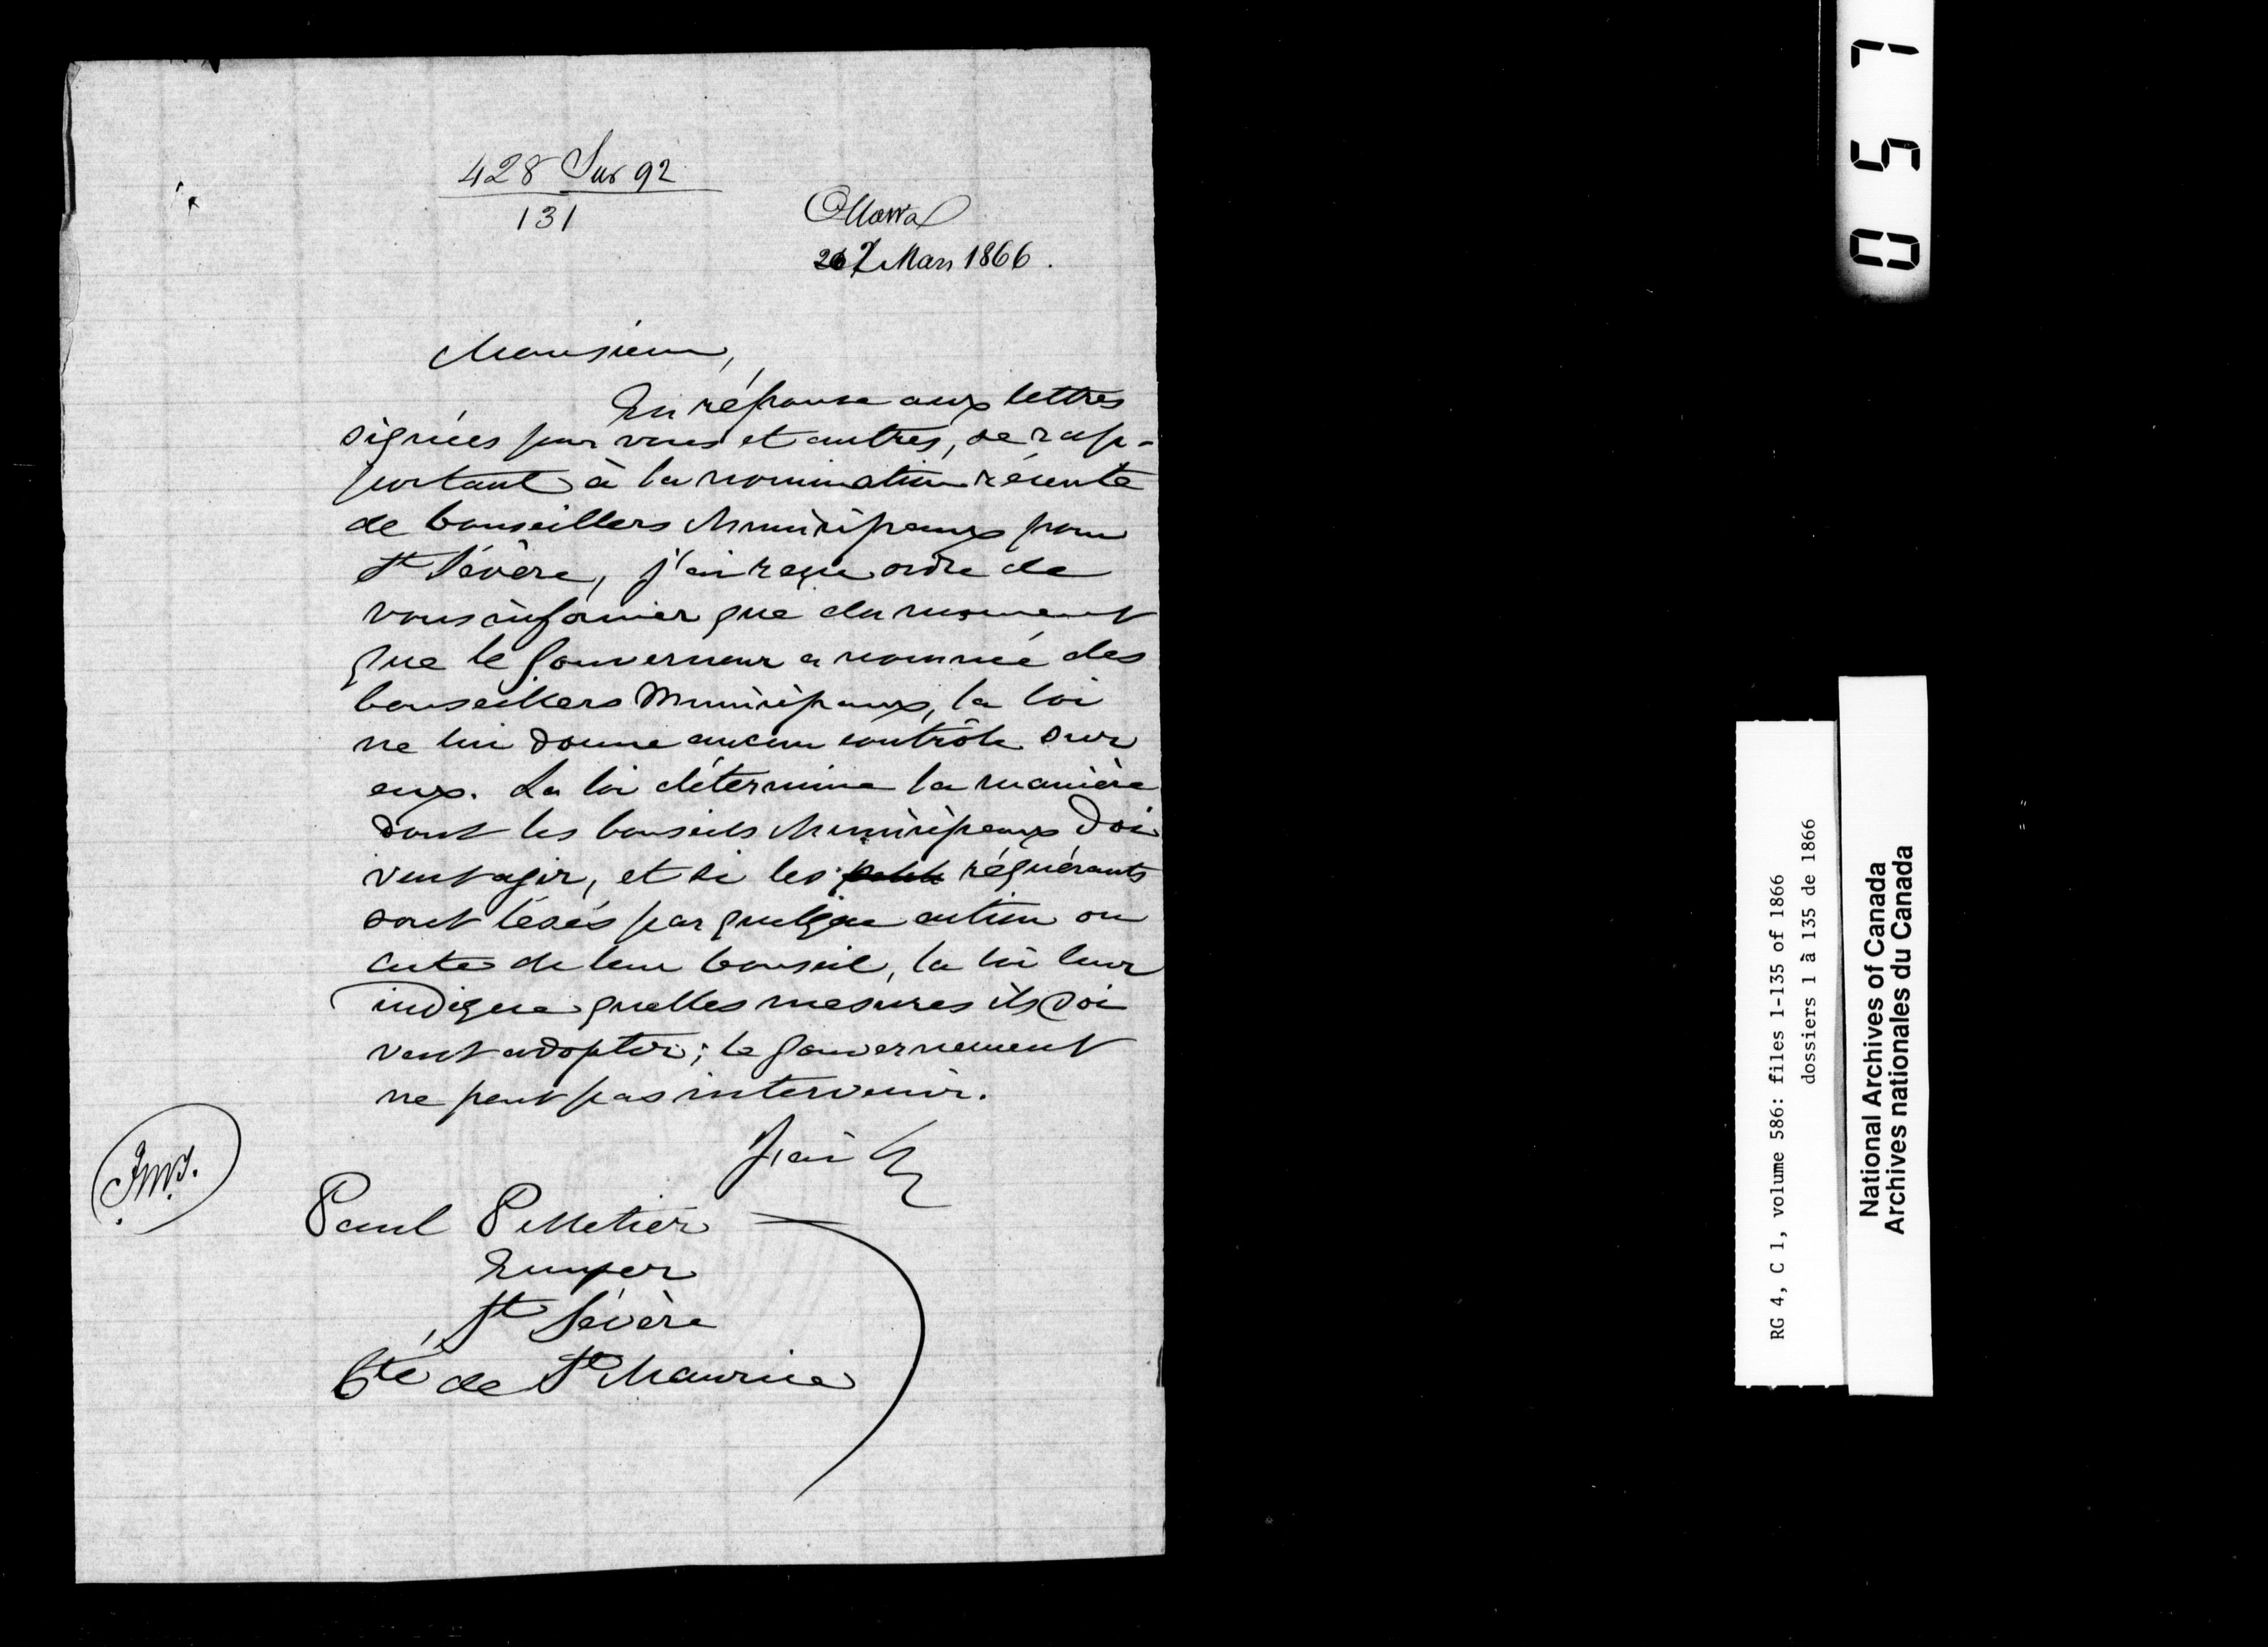 428 Sur 92
131
Ottawa
27 Mars 1866.
Monsieur,
En réponse aux lettres
signées par vous et autres, se rap-
portant à la nomination récente
de Conseillers Municipaux pour
St Sévère, j'ai reçu ordre de
vous informer que du moment
que le Gouverneur a nommé des
Conseillers Municipaux, la loi
ne lui donne aucun contrôle sur
eux. La loi détermine la manière
dont les Conseils Municipaux doi
vent agir, et si les requérants
sont lésés par quelque action ou
acte de leur Conseil, la loi leur
indique quelles mesures ils doi
vent adopter; le Gouvernement
ne peut pas intervenir.
J'ai &c
Paul Pelletier
Ecuyer
St Sévère
Cté de St Maurice
057
RG 4, C 1, volume 586: files 1-135 of 1866
dossiers 1 à 135 de 1866
National Archives of Canada
Archives nationales du Canada